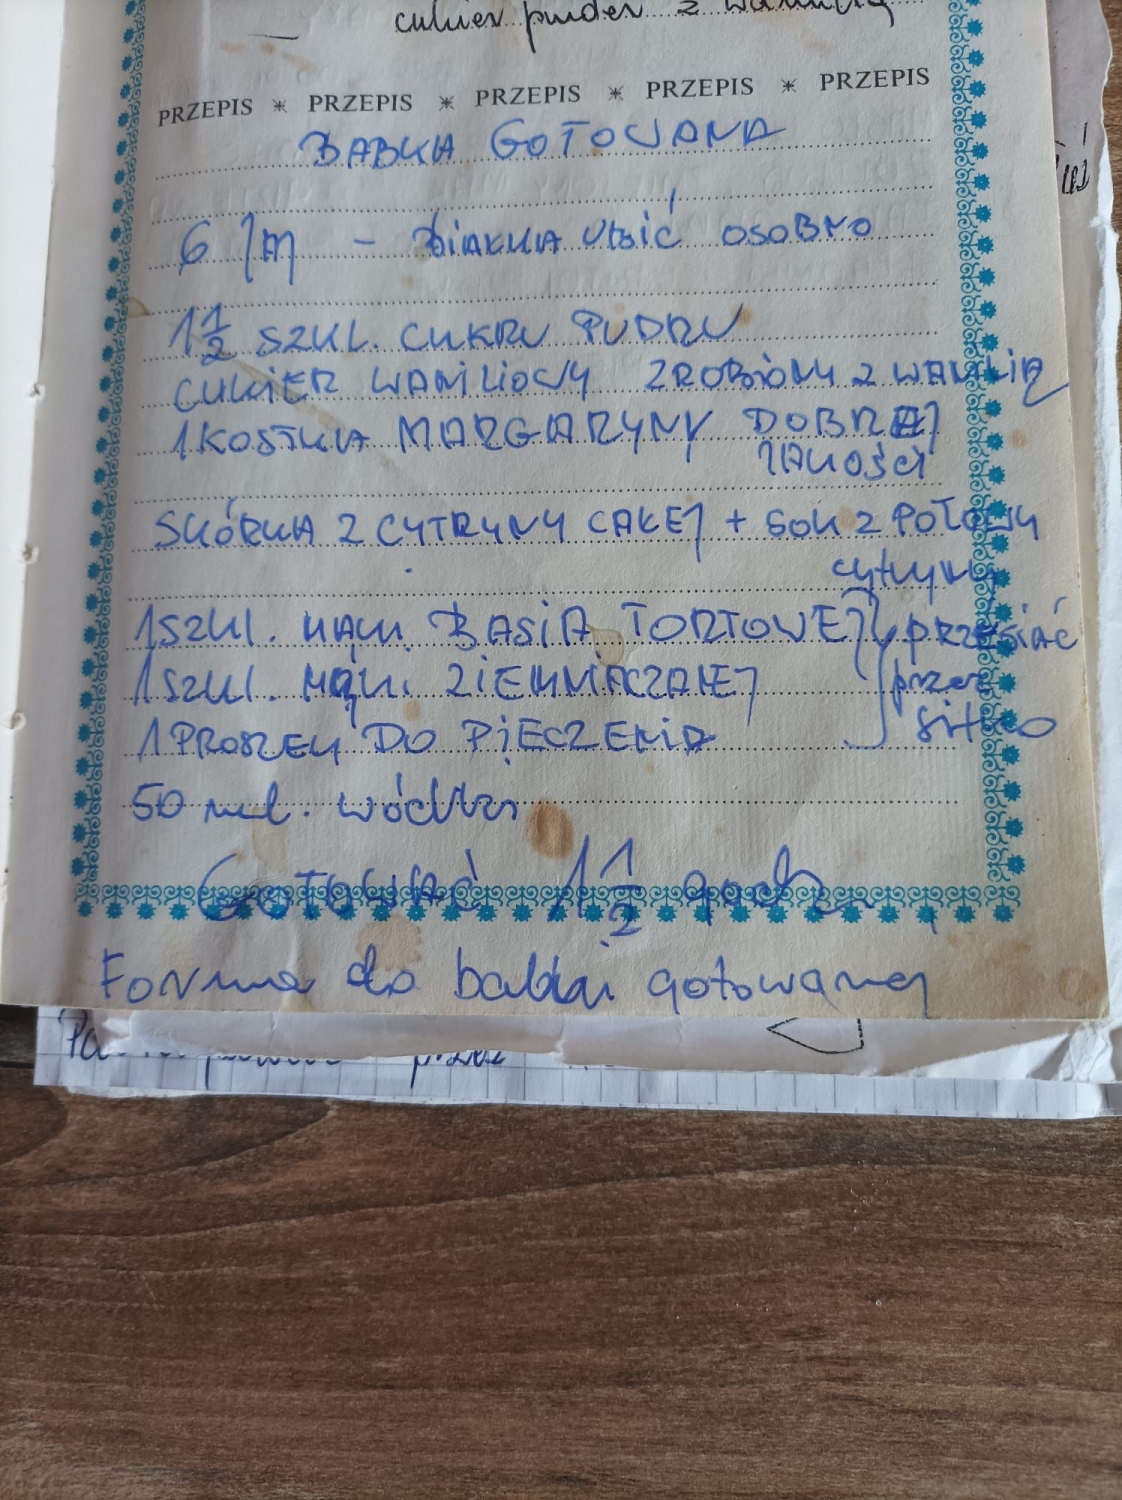 cukier puder z wanilią
PRZEPIS * PRZEPIS * PRZEPIS * PRZEPIS * PRZEPIS
BABKA GOTOWANA
6 JAJ - BIAŁKA UBIĆ OSOBNO
1 1/2 SZKL. CUKRU PUDRU
CUKIER WANILIOWY ZROBIONY Z WANILIĄ
1 KOSTKA MARGARYNY DOBREJ
JAKOŚCI
SKÓRKA Z CYTRYNY CAŁEJ + SOK Z POŁOWY
cytryny
1 SZKL. MĄKI BASIA TORTOWEJ przesiać
1 SZKL. MĄKI ZIEMNIACZANEJ przez
1 PROSZEK DO PIECZENIA sitko
50 ml. wódki
GOTOWAĆ 1 1/2 godz.
Forma do babki gotowanej
przez